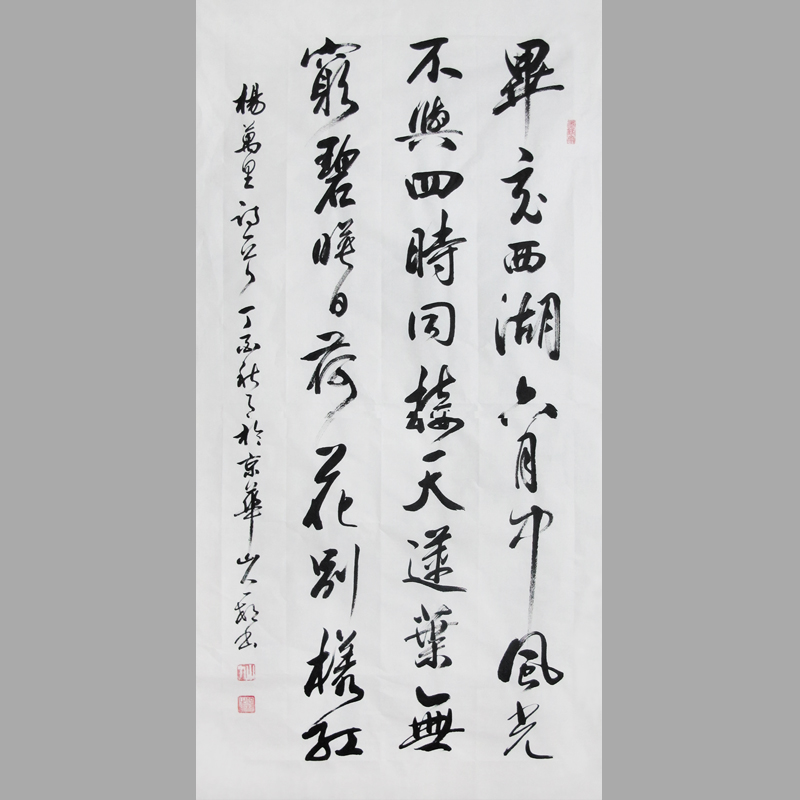 畢竟西湖六月中風光
不與四時同接天蓮葉無
窮碧暎日荷花別樣紅
楊萬里詩一首 丁酉秋月於京華 書